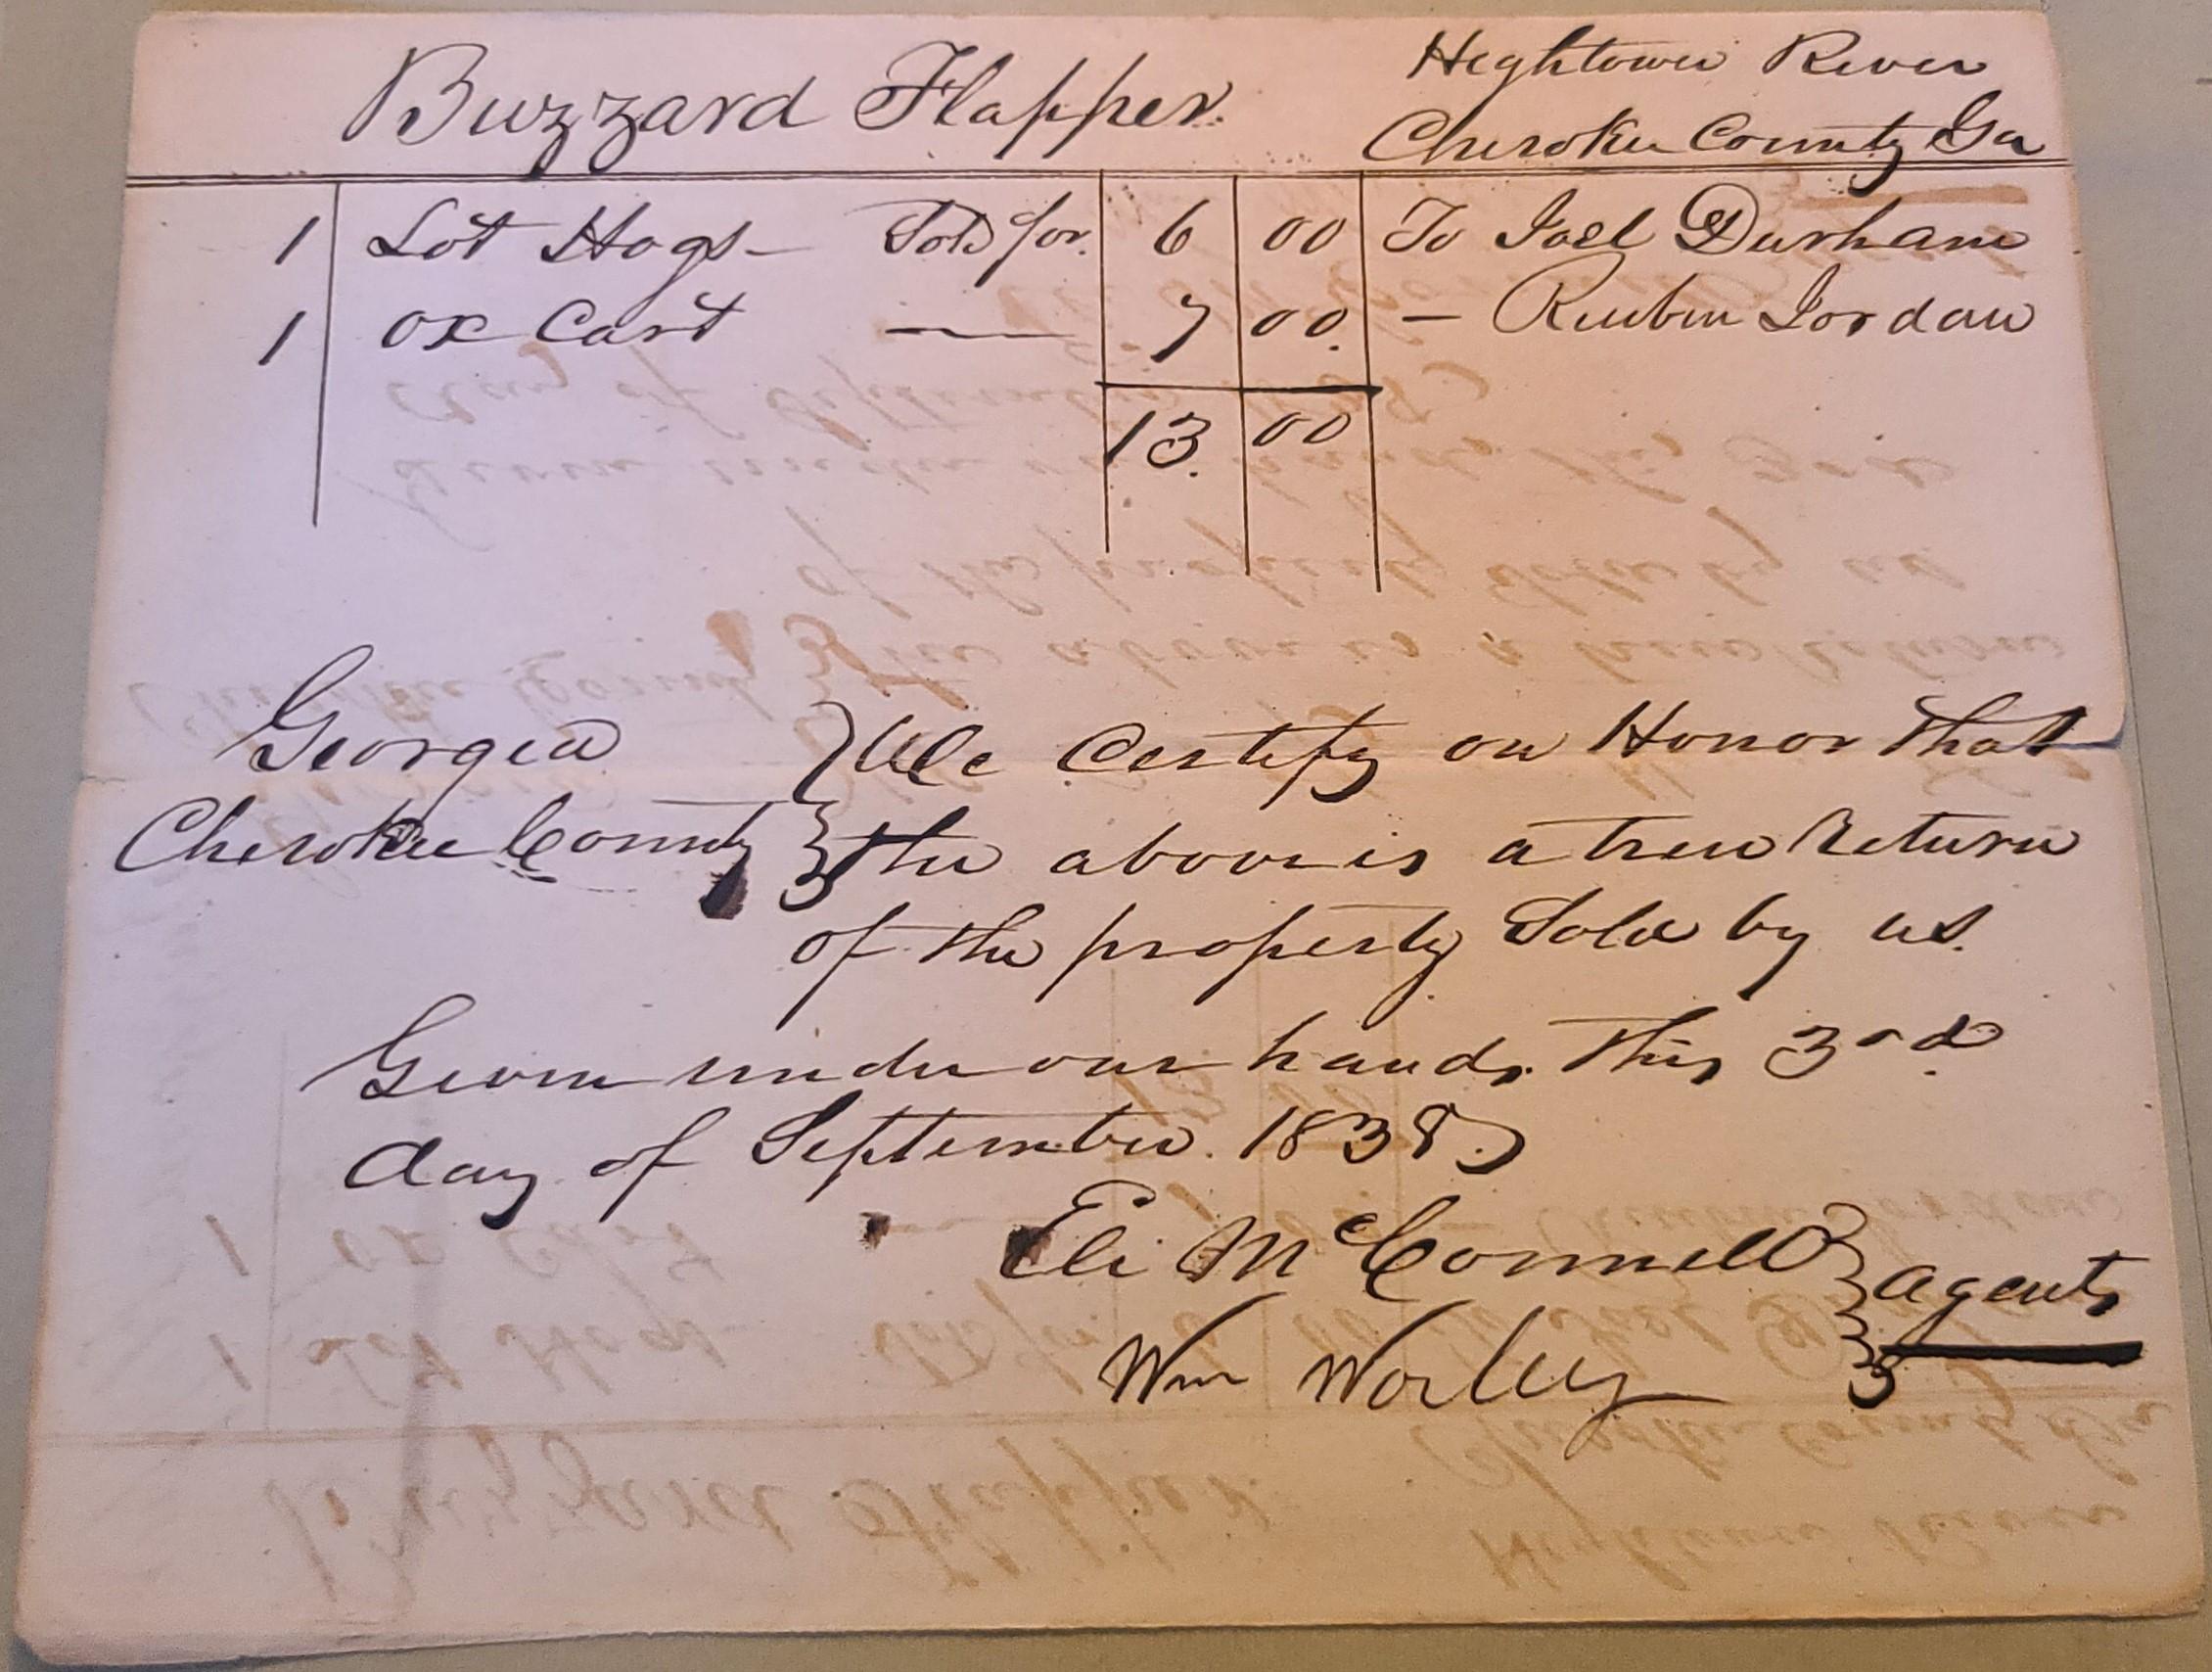 Buzzard Flapper. Hightower River
Cherokee County Ga
1 Lot Hogs - Sold for. 6 00 To Joel Durham
1 ox Cart — 7 00. - Reuben Jordan
13. 00
Georgia } We Certify on Honor that
Cherokee County } the above is a true Return
of the property Sold by us.
Given under our hands. this 3rd.
day of September. 1838.
Eli McConnell } agents
Wm Worley